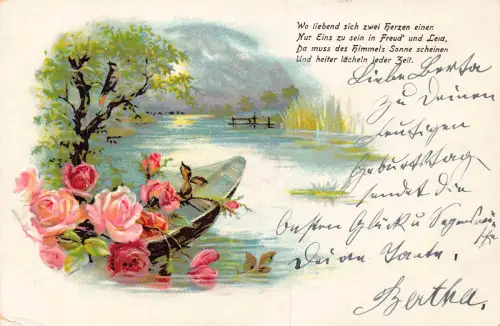 Wo liebend sich zwei Herzen einen
Nur Eins zu sein in Freud' und Leid,
Da muss des Himmels Sonne scheinen
Und heiter lächeln jeder Zeit.
Liebe Berta
zu Deinem
heutigen
Geburtstag
sendet die
besten Glück u Segenswün
sche
Deine Tante
Bertha.